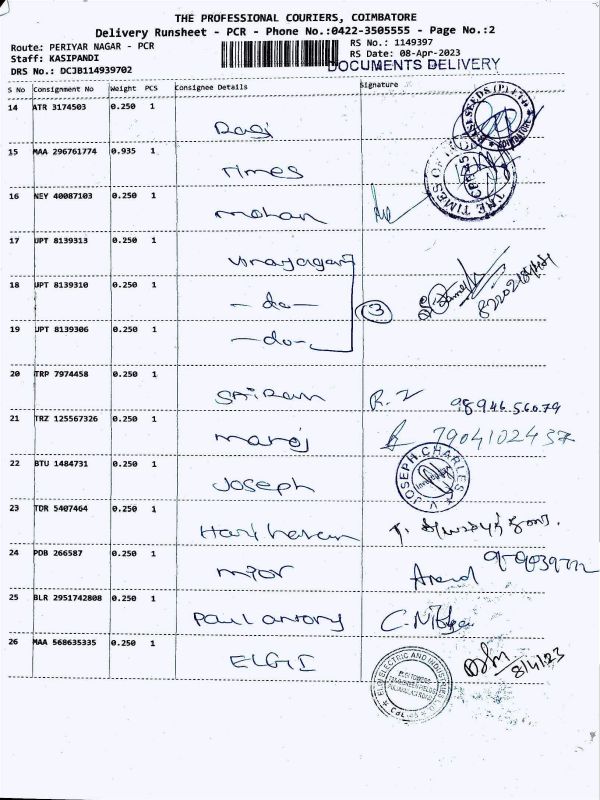 THE PROFESSIONAL COURIERS, COIMBATORE
Delivery Runsheet - PCR - Phone No.:0422-3505555 - Page No.:2
Route: PERIYAR NAGAR - PCR RS No.: 1149397
Staff: KASIPANDI RS Date: 08-Apr-2023
DRS No.: DCJB114939702 DOCUMENTS DELIVERY
S No Consignment No Weight PCS Consignee Details Signature
14 ATR 3174503 0.250 1
15 MAA 296761774 0.935 1 Times
16 NEY 40087103 0.250 1 mohan
17 UPT 8139313 0.250 1 vinayagar
18 UPT 8139310 0.250 1 -do- 3
19 UPT 8139306 0.250 1 -do-
20 TRP 7974458 0.250 1 SAIRAM R. 98946 56079
21 TRZ 125567326 0.250 1 manoj 7904102437
22 BTU 1484731 0.250 1 JOSEPH V. JOSEPH CHARLES
23 TDR 5407464 0.250 1 Hariharan
24 PDB 266587 0.250 1 Anand
25 BLR 2951742808 0.250 1 Paul antony
26 MAA 568635335 0.250 1 ELGI 8/4/23
ELGI ELECTRIC AND INDUSTRIES